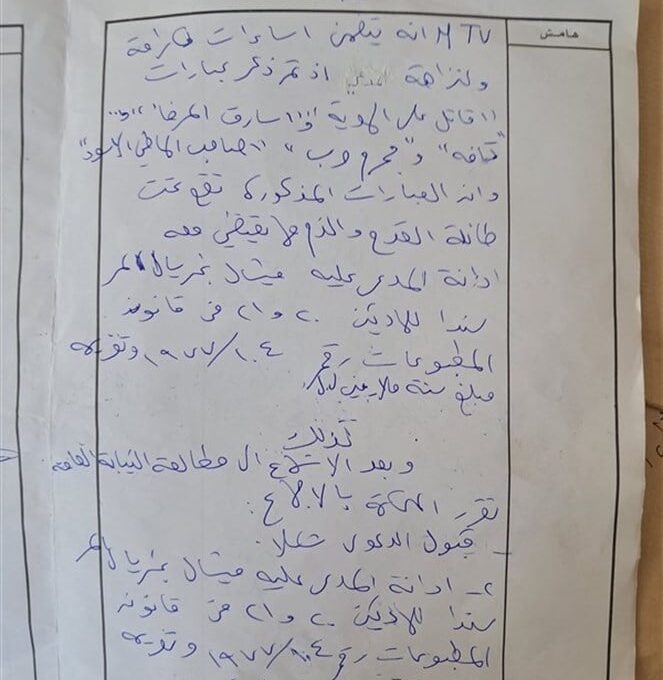 هامش
MTV انه يتضمن اساءات لكرامة
ولنزاهة المدعي اذ تم ذكر عبارات
"قاتل على الهوية" و"سارق المرضا" و
"تافه" و"مجرم حرب" "صاحب الماضي الاسود"
وان العبارات المذكورة تقع تحت
طائلة القدح والذم مما يقتضي معه
ادانة المدعى عليه ميشال غبريال المر
سندا للمادتين ٢٠ و٢١ من قانون
المطبوعات رقم ١٠٤/١٩٧٧ وتغريمه
مبلغ ستة ملايين ل.ل.
لذلك
وبعد الاطلاع ال مطالعة النيابة العامة
تقرر المحكمة بالاجماع:
- قبول الدعوى شكلا.
٢- ادانة المدعى عليه ميشال غبريال المر
سندا للمادتين ٢٠ و٢١ من قانون
المطبوعات رقم ١٠٤/١٩٧٧ وتغريمه